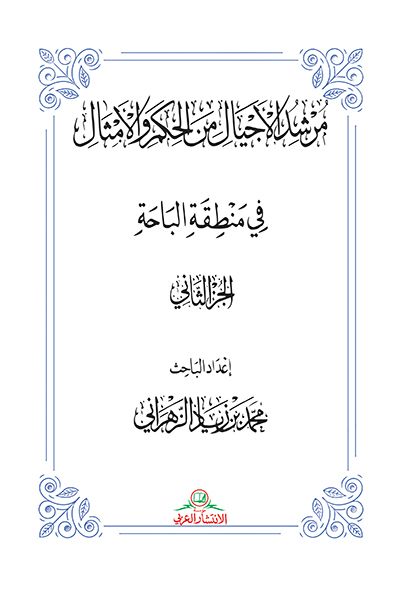 مُرْشِدُ الأَجْيَالِ مِنَ الحِكَمِ وَالأَمْثَالِ
فِي مَنْطِقَةِ البَاحَةِ
الجُزْءُ الثَّانِي
إِعْدَادُ البَاحِث
مُحَمَّد بْن زِيَاد الزَّهْرَانِي
الانتشار العربي